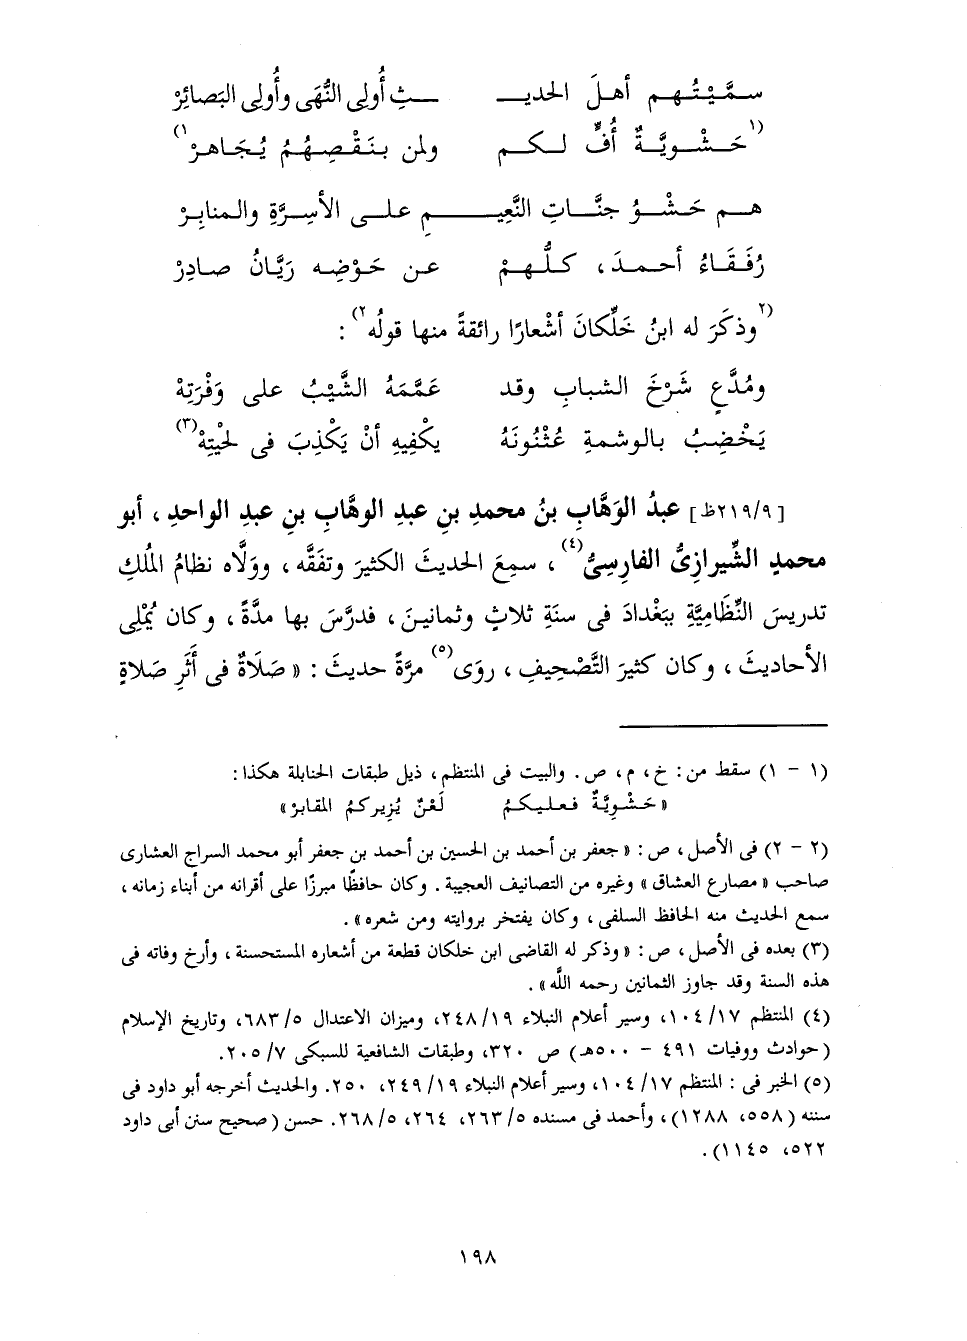 سمَّيْتُهم أهلَ الحديـ ـثِ أُولِى النُّهَى وأُولِى البَصائِرْ
(١ حَشْوِيَّةٌ أُفٍّ لكم ولمن بنَقْصِهُمُ يُجَاهرْ ١)
هم حَشْوُ جنَّاتِ النَّعِيـ ـمِ على الأسِرَّةِ والمنابِرْ
رُفَقَاءُ أحمدَ، كلُّهمْ عن حَوْضِه رَيَّانُ صادِرْ
(٢ وذكَرَ له ابنُ خَلِّكانَ أشْعارًا رائقةً منها قولُه ٢) :
ومُدَّعٍ شَرْخَ الشبابِ وقد عَمَّمَهُ الشَّيْبُ على وَفْرَتِهْ
يَخْضِبُ بالوشمةِ عُثْنُونَهُ يكْفِيهِ أنْ يَكْذِبَ فى لحْيتِهْ (٣)
[٢١٩/٩ظ] عبدُ الوَهَّابِ بنُ محمدِ بنِ عبدِ الوهَّابِ بنِ عبدِ الواحدِ، أبو
محمدٍ الشِّيرازِىُّ الفارِسِىُّ (٤)، سمِعَ الحديثَ الكثيرَ وتفَقَّه، وولَّاه نظامُ المُلكِ
تدريسَ النِّظَامِيَّةِ ببَغْدادَ فى سنَةِ ثلاثٍ وثمانينَ، فدرَّسَ بها مدَّةً، وكان يُمْلِى
الأحاديثَ، وكان كثيرَ التَّصْحِيفِ، روَى (٥) مرَّةً حديثَ : « صَلَاةٌ فى أَثَرِ صَلاةٍ
(١ - ١) سقط من: خ، م، ص. والبيت فى المنتظم، ذيل طبقات الحنابلة هكذا :
« حَشْوِيَّةٌ فعليكمُ لَعْنٌ يُزِيركمُ المقابرْ »
(٢ - ٢) فى الأصل، ص : « جعفر بن أحمد بن الحسين بن أحمد بن جعفر أبو محمد السراج العشارى
صاحب « مصارع العشاق » وغيره من التصانيف العجيبة . وكان حافظًا مبرزًا على أقرانه من أبناء زمانه،
سمع الحديث منه الحافظ السلفى، وكان يفتخر بروايته ومن شعره » .
(٣) بعده فى الأصل، ص : « وذكر له القاضى ابن خلكان قطعة من أشعاره المستحسنة، وأرخ وفاته فى
هذه السنة وقد جاوز الثمانين رحمه اللَّه » .
(٤) المنتظم ١٠٤/١٧، وسير أعلام النبلاء ٢٤٨/١٩، وميزان الاعتدال ٦٨٣/٥، وتاريخ الإسلام
(حوادث ووفيات ٤٩١ - ٥٠٠هـ) ص ٣٢٠، وطبقات الشافعية للسبكى ٢٠٥/٧.
(٥) الخبر فى : المنتظم ١٠٤/١٧، وسير أعلام النبلاء ٢٤٩/١٩، ٢٥٠. والحديث أخرجه أبو داود فى
سننه (٥٥٨، ١٢٨٨)، وأحمد فى مسنده ٢٦٣/٥، ٢٦٤، ٢٦٨/٥. حسن (صحيح سنن أبى داود
٥٢٢، ١١٤٥).
١٩٨